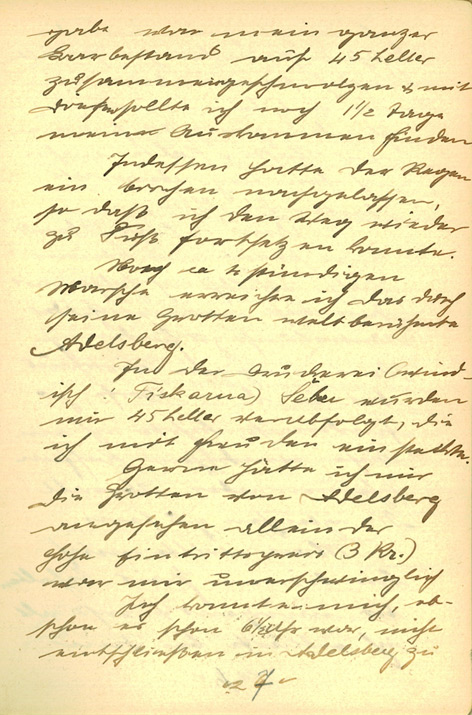 gabe war mein ganzer
Barbestand auf 45 Heller
zusammengeschmolzen & mit
diesen sollte ich noch 1½ Tage
mein Auskommen finden
Indessen hatte der Regen
ein bischen nachgelassen,
so daß ich den Weg wieder
zu Fuß fortsetzen konnte.
Nach ca stündigen
Marsche erreichte ich das durch
seine Grotten weltberühmte
Adelsberg.
In der Druckerei (wind
isch: Tiskarna) Šeber wurden
mir 45 Heller verabfolgt, die
ich mit Freuden einsteckte.
Gerne hätte ich mir
die Grotten von Adelsberg
angesehen allein der
hohe Eintrittspreis (3 Kr.)
war mir unerschwinglich
Ich konnte mich, ob-
schon es schon 6½ Uhr war, nicht
entschließen in Adelsberg zu
27